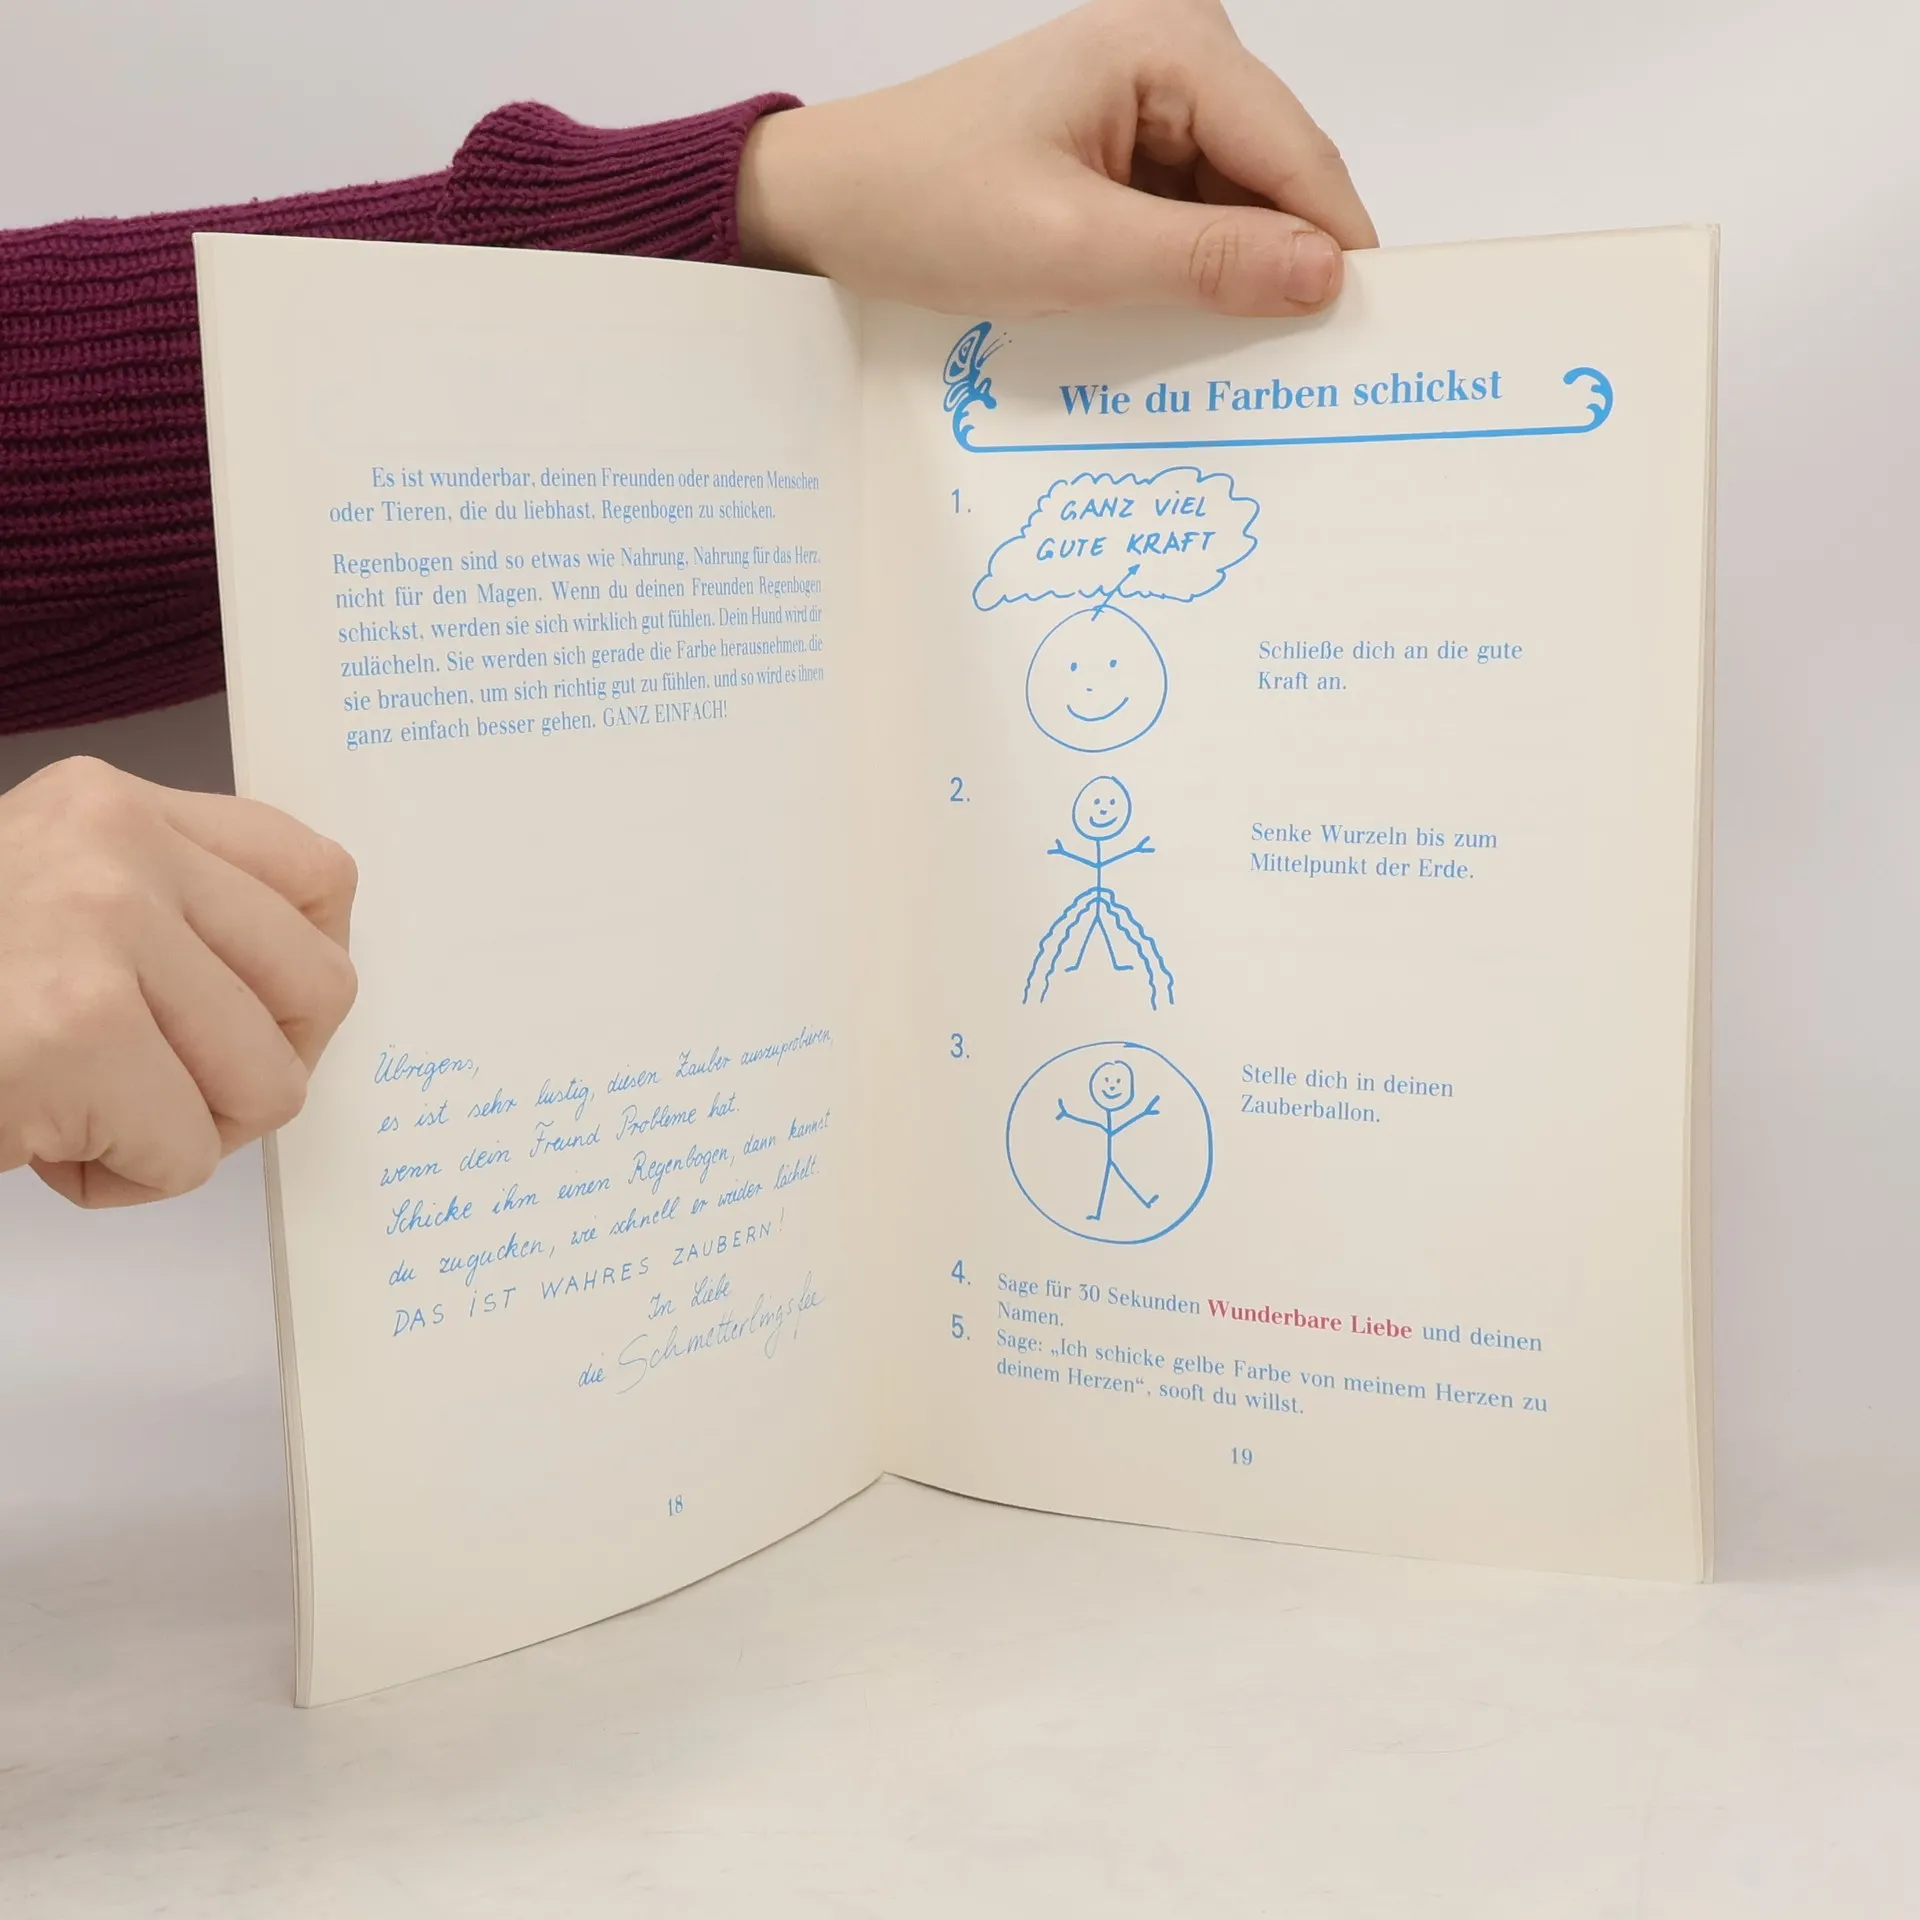 Es ist wunderbar, deinen Freunden oder anderen Menschen
oder Tieren, die du liebhast, Regenbogen zu schicken.
Regenbogen sind so etwas wie Nahrung, Nahrung für das Herz,
nicht für den Magen. Wenn du deinen Freunden Regenbogen
schickst, werden sie sich wirklich gut fühlen. Dein Hund wird dir
zulächeln. Sie werden sich gerade die Farbe herausnehmen, die
sie brauchen, um sich richtig gut zu fühlen, und so wird es ihnen
ganz einfach besser gehen. GANZ EINFACH!
Übrigens,
es ist sehr lustig, diesen Zauber auszuprobieren,
wenn dein Freund Probleme hat.
Schicke ihm einen Regenbogen, dann kannst
du zugucken, wie schnell er wieder lächelt.
DAS IST WAHRES ZAUBERN!
In Liebe
die Schmetterlingsfee
18
Wie du Farben schickst
1.
GANZ VIEL
GUTE KRAFT
Schließe dich an die gute
Kraft an.
2.
Senke Wurzeln bis zum
Mittelpunkt der Erde.
3.
Stelle dich in deinen
Zauberballon.
4. Sage für 30 Sekunden Wunderbare Liebe und deinen
Namen.
5. Sage: „Ich schicke gelbe Farbe von meinem Herzen zu
deinem Herzen“, sooft du willst.
19